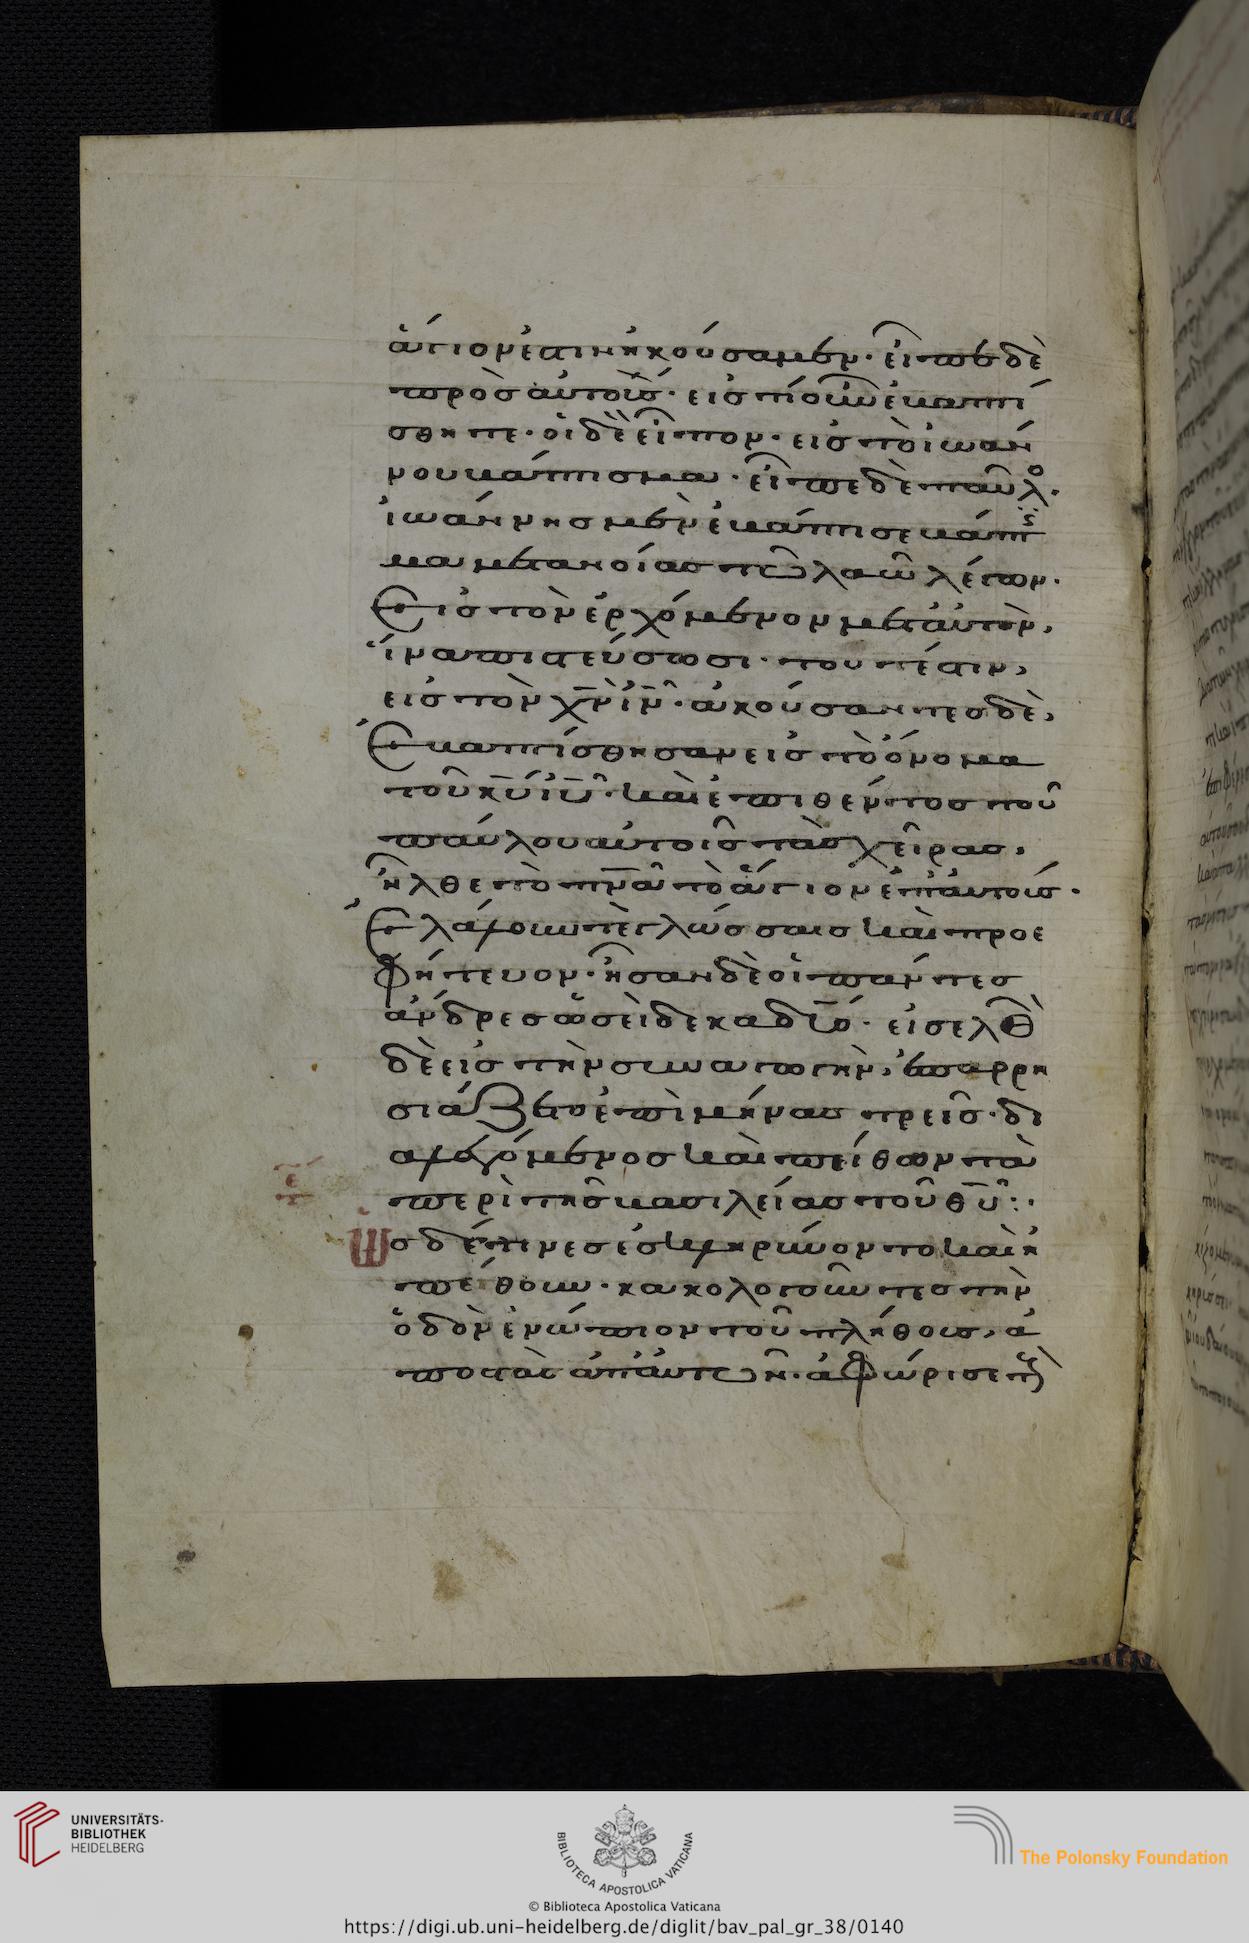 ἅγιον ἐστιν ἠκούσαμεν· εἶπεν δὲ
πρὸς αὐτούς· εἰς τί οὖν ἐβαπτί
σθητε· οἱ δὲ εἶπον· εἰς τὸ ἰωάν
νου βάπτισμα· εἶπε δὲ παῦλο·
ἰωάννης μὲν ἐβάπτισε βάπτισ
μα μετανοίας τῶ λαῶ λέγων·
Εἰς τὸν ἐρχόμενον μετ᾽ αὐτὸν,
ἵνα πιστεύσωσι· τουτέστιν,
εἰς τὸν χ̅ν̅ ι̅ν̅· ἀκούσαντες δὲ,
Ἐβαπτίσθησαν εἰς τὸ ὄνομα
τοῦ κ̅υ̅ ι̅υ̅· καὶ ἐπιθέντος τοῦ
παύλου αὐτοῖς τὰς χεῖρας,
ἦλθε τὸ π̅ν̅α̅ τὸ ἅγιον ἐπ᾽ αὐτούς·
Ἐλάλουν τὲ γλώσσαις καὶ προε
φήτευον· ἦσαν δὲ οἱ πάντες
ἄνδρες ὡσεὶ δεκαδύο· εἰσελθὼ
δὲ εἰς τὴν συναγωγὴν, ἐπαρρη
σιάζετο ἐπὶ μῆνας τρεῖς· δι
αλεγόμενος καὶ πείθων τὰ
περὶ τῆς βασιλείας τοῦ θ̅υ̅:·
Ὡς δέ τινες ἐσκληρύνοντο καὶ ἠ
πείθουν· κακολογοῦντες τὴν
ὁδὸν ἐνώπιον τοῦ πλήθους, ἀ
ποστὰς ἀπ᾽ αὐτῶν· ἀφώρισε τοὺς
UNIVERSITÄTS-
BIBLIOTHEK
HEIDELBERG
BIBLIOTECA APOSTOLICA VATICANA
The Polonsky Foundation
© Biblioteca Apostolica Vaticana
https://digi.ub.uni-heidelberg.de/diglit/bav_pal_gr_38/0140